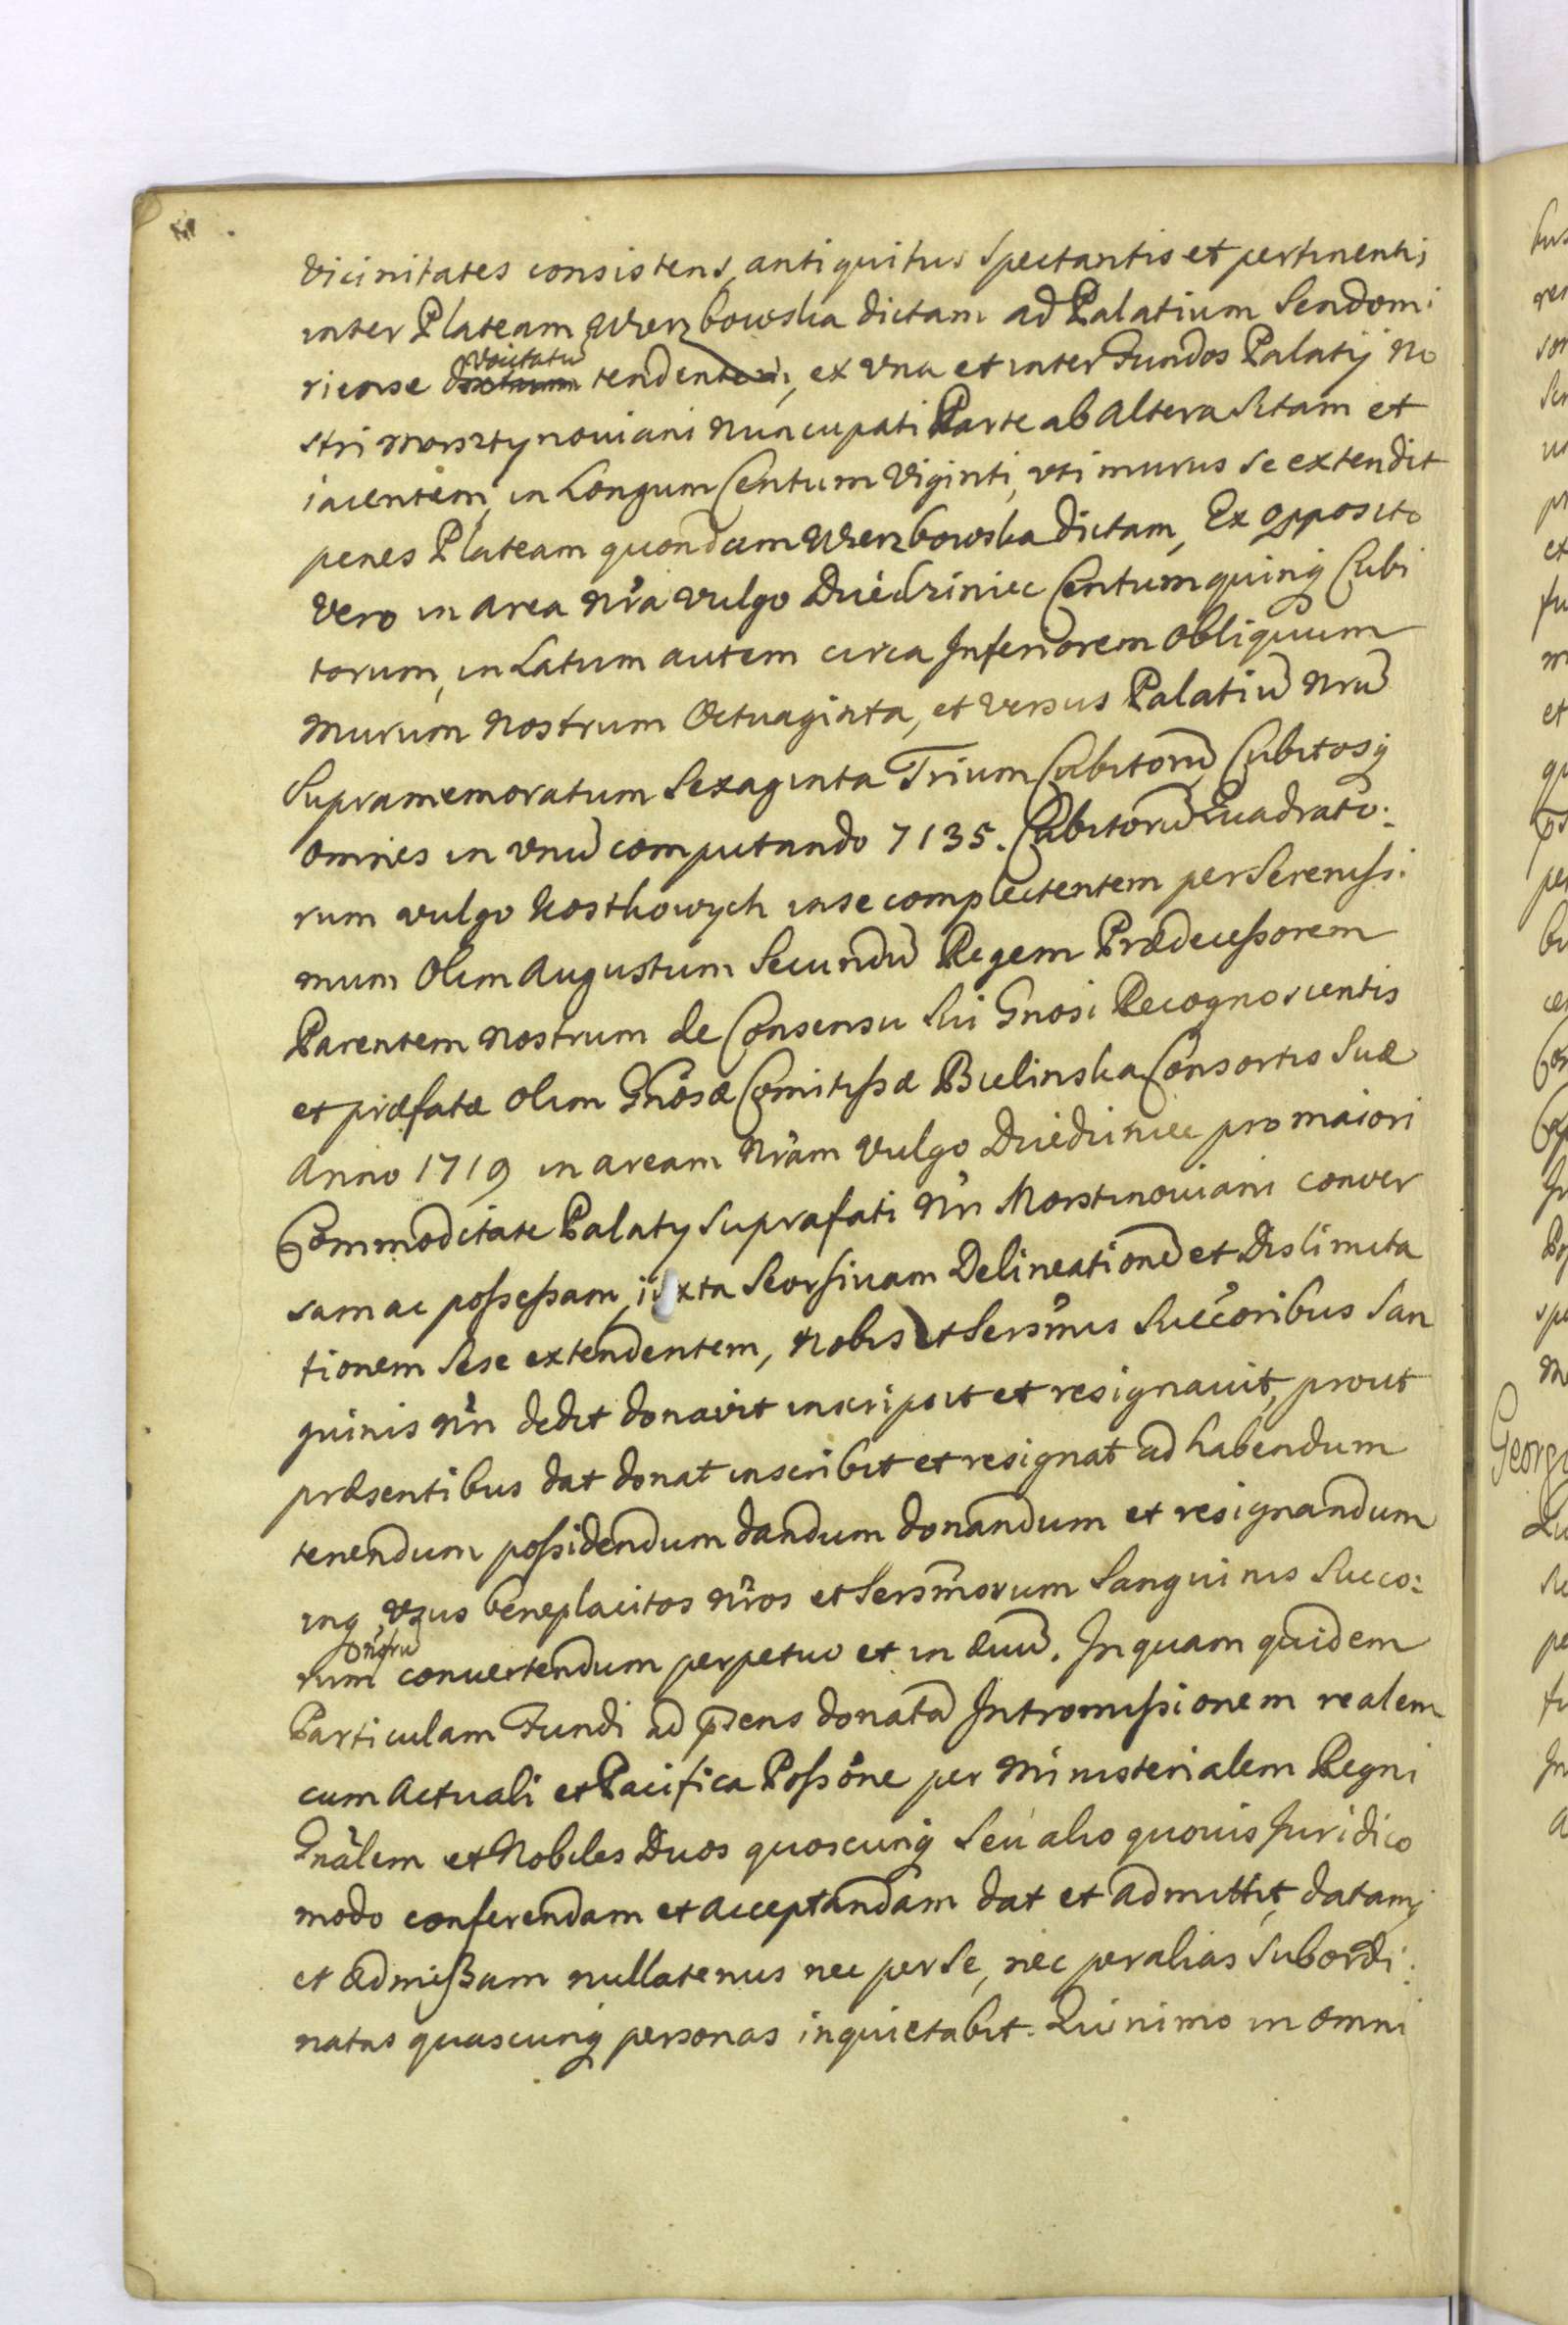 Vicinitates consistens, antiquitus Spectantis et pertinentis
inter Plateam Wierzbowska dictam ad Palatium Sendomi:
riense vocitatũ tendentem, ex Vna et inter Fundos Palatij No
stri Morsztynoviani Nuncupati Parte ab Altera Sitam et
iacentem, in Longum Centum Viginti, vti murus se extendit
penes Plateam quondam Wierzbowska dictam, Ex opposito
Vero in area Nr̃a vulgo Dziedziniec Centum quinq Cubi
torum, in Latum autem circa Inferiorem Obliquum
Murum Nostrum Octuaginta, et versus Palatiũ Nrũ
Supramemoratum Sexaginta Trium Cubitorũ Cubitosq
omnes in vnũ computando 7135. Cubitorũ Quadrato:
rum vulgo Kostkowych in se complectentem per Sereniſsi:
mum Olim Augustum Secundũ Regem Prædeceſsorem
Parentem Nostrum de Consensu Sui Gnosi Recognoscentis
et præfatæ olim Gñosæ Comitiſsæ Bielinska Consortis Suæ
Anno 1719 in aream Nrãm Vulgo Dziedziniec pro maiori
Commoditate Palaty Suprafati Nr̃i Morstinoviani conver
sam ac poſseſsam, iuxta Seorsivam Delineationẽ et Dislimita
tionem Sese extendentem, Nobis et Sersm̃is Succ̃oribus San
guinis Nr̃i dedit donavit inscripsit et resignavit, prout
præsentibus dat donat inscribit et resignat ad habendum
tenendum poſsidendum dandum donandum et resignandum
inq Vsus beneplacitos Nr̃os et Sersm̃orum Sanguinis Succo:
rum nr̃orũ convertendum perpetuo et in ævũ. In quam quidem
Particulam Fundi ad p̃sens donatã Intromiſsionem realem
cum Actuali et Pacifica Poſsõne per Ministerialem Regni
Gnãlem et Nobiles Duos quoscunq Seu alio quovis Juridico
modo conferendam et acceptandam dat et admittit, datamq
et admißam nullatenus nec per Se, nec per alias Subordi:
natas quascunq personas inquietabit. Quinimo in omni